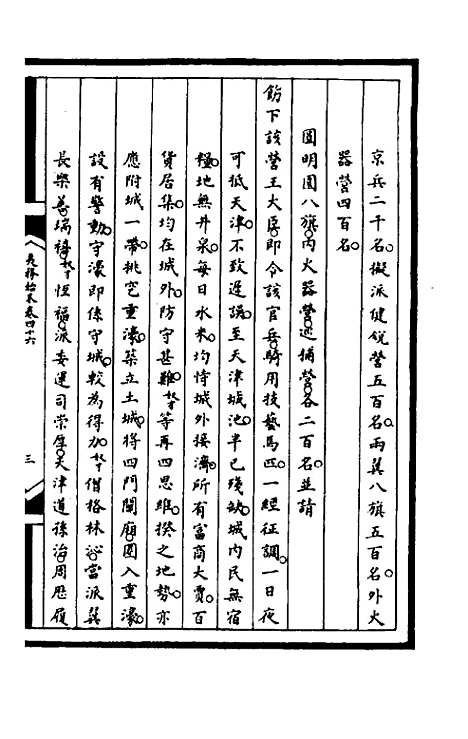 京兵二千名擬派健銳營五百名兩翼八旗五百名外火
器營四百名
圓明園八旗內火器營巡捕營各二百名並請
飭下該營王大臣即令該官兵騎用技藝馬匹一經征調一日夜
可抵天津不致遲誤至天津城池半已殘缺城內民無宿
糧地無井泉每日水米均恃城外接濟所有富商大賈百
貨居集均在城外防守甚難等再四思維揆之地勢亦
應附城一帶挑空重濠築立土城將四門關廂圈入重濠
設有警動守濠即係守城較為得力僧格林沁當派翼
長樂善瑞禧恒福派委運司崇厚天津道孫治周歷履
卷四十六
三